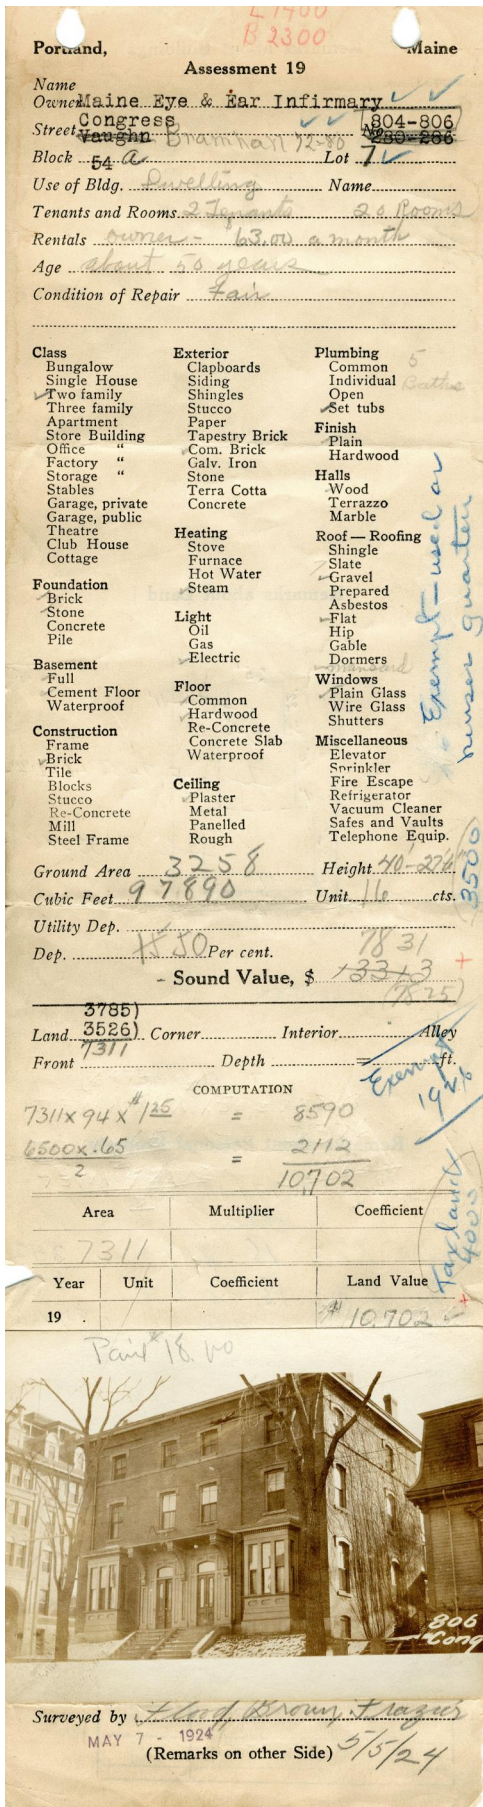 L 1400
B 2300
Portland, Maine
Assessment 19
Name
Owner Maine Eye & Ear Infirmary
Congress 804-806
Street Vaughn Bramhall 72-80 No. 280-286
Block 54 a Lot 7
Use of Bldg. Dwelling Name
Tenants and Rooms 2 Tenants 20 Rooms
Rentals owner - 63.00 a month
Age about 50 years
Condition of Repair Fair
Class
Bungalow
Single House
Two family
Three family
Apartment
Store Building
Office "
Factory "
Storage "
Stables
Garage, private
Garage, public
Theatre
Club House
Cottage
Foundation
Brick
Stone
Concrete
Pile
Basement
Full
Cement Floor
Waterproof
Construction
Frame
Brick
Tile
Blocks
Stucco
Re-Concrete
Mill
Steel Frame
Exterior
Clapboards
Siding
Shingles
Stucco
Paper
Tapestry Brick
Com. Brick
Galv. Iron
Stone
Terra Cotta
Concrete
Heating
Stove
Furnace
Hot Water
Steam
Light
Oil
Gas
Electric
Floor
Common
Hardwood
Re-Concrete
Concrete Slab
Waterproof
Ceiling
Plaster
Metal
Panelled
Rough
Plumbing
Common 5
Individual Baths
Open
Set tubs
Finish
Plain
Hardwood
Halls
Wood
Terrazzo
Marble
Roof — Roofing
Shingle
Slate
Gravel
Prepared
Asbestos
Flat
Hip
Gable
Dormers
Mansard
Windows
Plain Glass
Wire Glass
Shutters
Miscellaneous
Elevator
Sprinkler
Fire Escape
Refrigerator
Vacuum Cleaner
Safes and Vaults
Telephone Equip.
Exempt - used as
nurses quarters
3500
Ground Area 3258 Height 40-27
Cubic Feet 97890 Unit 16 cts.
Utility Dep.
Dep. 50 Per cent. 7831
- Sound Value, $ 13313
(7825)
3785)
Land 3526) Corner Interior Alley
7311
Front Depth ft.
Exempt
1926
COMPUTATION
7311 x 94 x $1.25 = 8590
6500 x .65
2 = 2112
10,702
Area Multiplier Coefficient
7311
Tax land
4000
Year Unit Coefficient Land Value
19 $ 10,702
Paint $18.00
806
Cong
Surveyed by Floyd Brown, Frazier
MAY 7 - 1924 5/5/24
(Remarks on other Side)